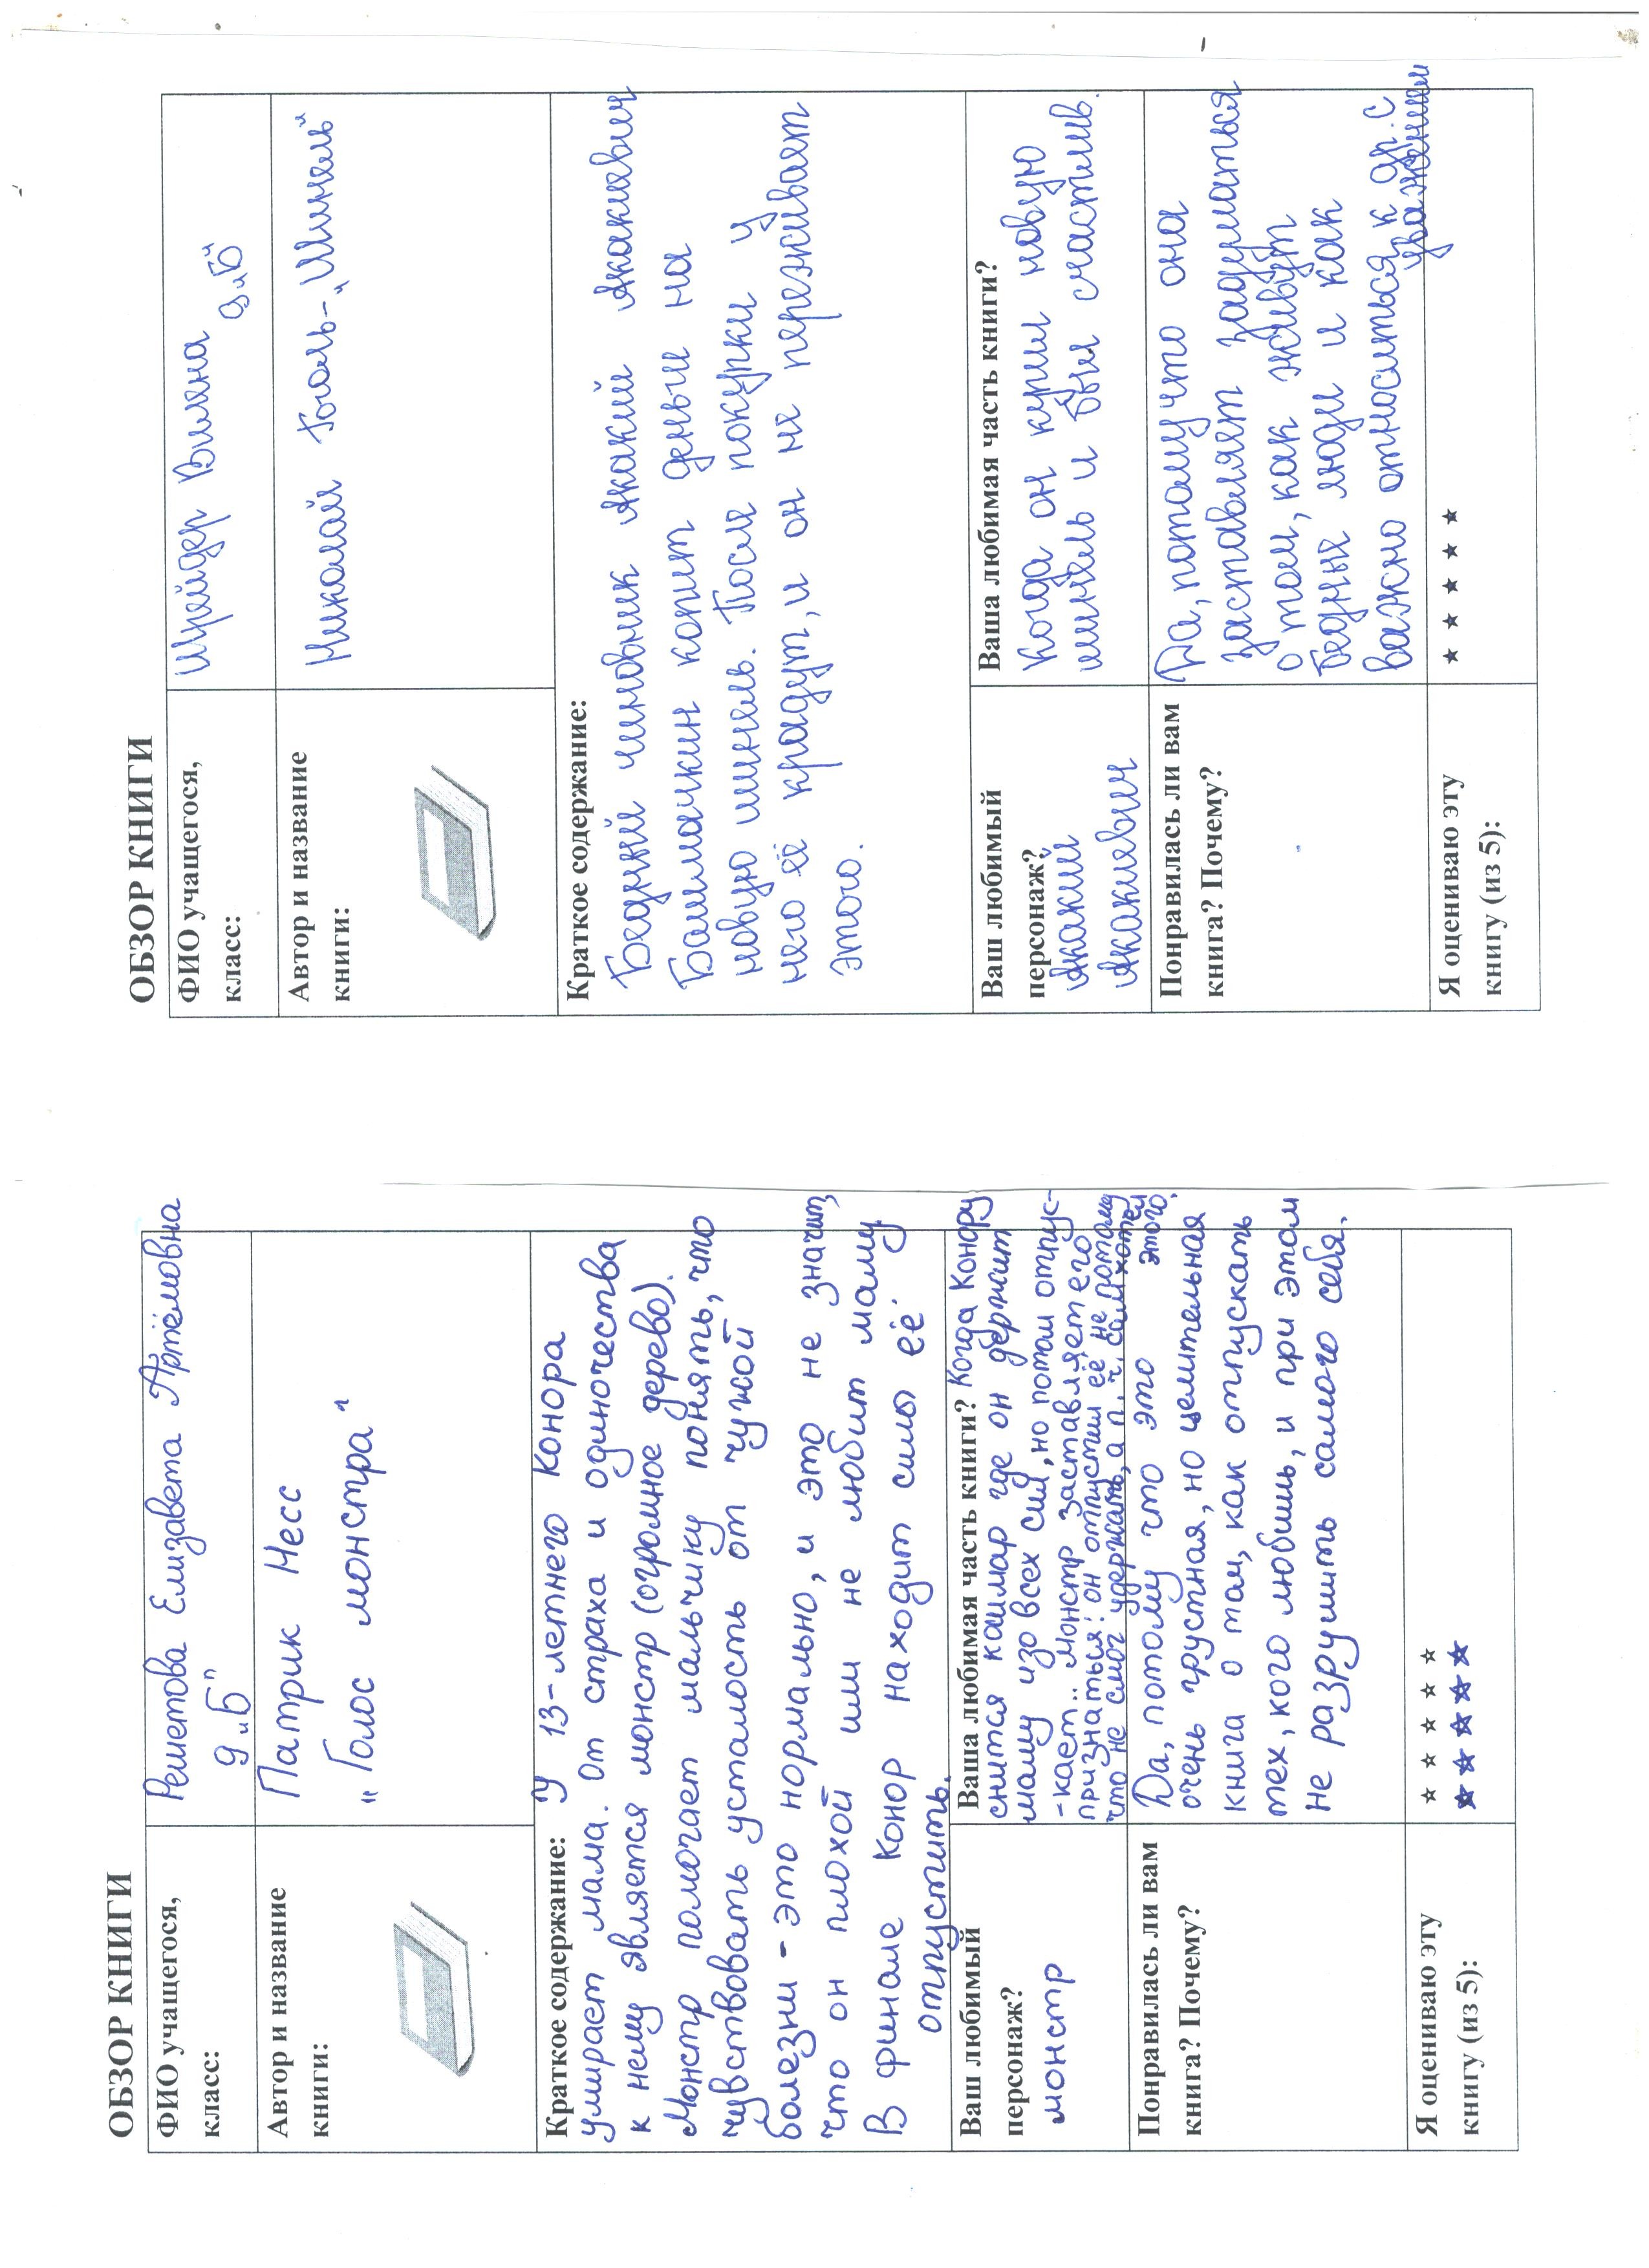 ОБЗОР КНИГИ
ФИО учащегося,
класс:
Решетова Елизавета Артёмовна
9 „Б"
Автор и название
книги:
Патрик Несс
„Голос монстра"
Краткое содержание: У 13-летнего Конора
умирает мама. От страха и одиночества
к нему является монстр (огромное дерево).
Монстр помогает мальчику понять, что
чувствовать усталость от чужой
болезни - это нормально, и это не значит,
что он плохой или не любит маму.
В финале Конор находит силы её
отпустить.
Ваш любимый
персонаж?
монстр
Ваша любимая часть книги? Когда Конору
снится кашмар где он держит
маму изо всех сил, но потом отпус-
-кает.. Монстр заставляет его
признаться: он отпустил её не потому
что не смог удержать, а п.ч. сам хотел
этого.
Понравилась ли вам
книга? Почему?
Да, потому что это
очень грустная, но целительная
книга о том, как отпускать
тех, кого любишь, и при этом
не разрушить самого себя.
Я оцениваю эту
книгу (из 5):
★ ★ ★ ★ ★
★ ★ ★ ★ ★
ОБЗОР КНИГИ
ФИО учащегося,
класс:
Шрейдер Вилена
9 „Б"
Автор и название
книги:
Николай Гоголь-„Шинель"
Краткое содержание:
Бедный чиновник Акакий Акакиевич
Башмачкин копит деньги на
новую шинель. После покупки у
него её крадут, и он не переживает
этого.
Ваш любимый
персонаж?
Акакий
Акакиевич
Ваша любимая часть книги?
Когда он купил новую
шинель и был счастлив.
Понравилась ли вам
книга? Почему?
Да, потому что она
заставляет задуматься
о том, как живут
бедные люди и как
важно относиться к др. с
уважением
Я оцениваю эту
книгу (из 5):
★ ★ ★ ★ ★